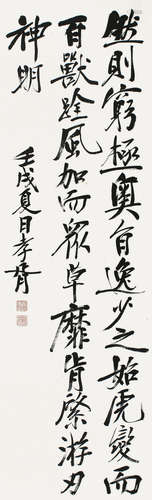 然則窮極奥旨逸少之始虎變而
百獸跧風加而眾草靡肯綮游刃
神明
壬戌夏日孝胥